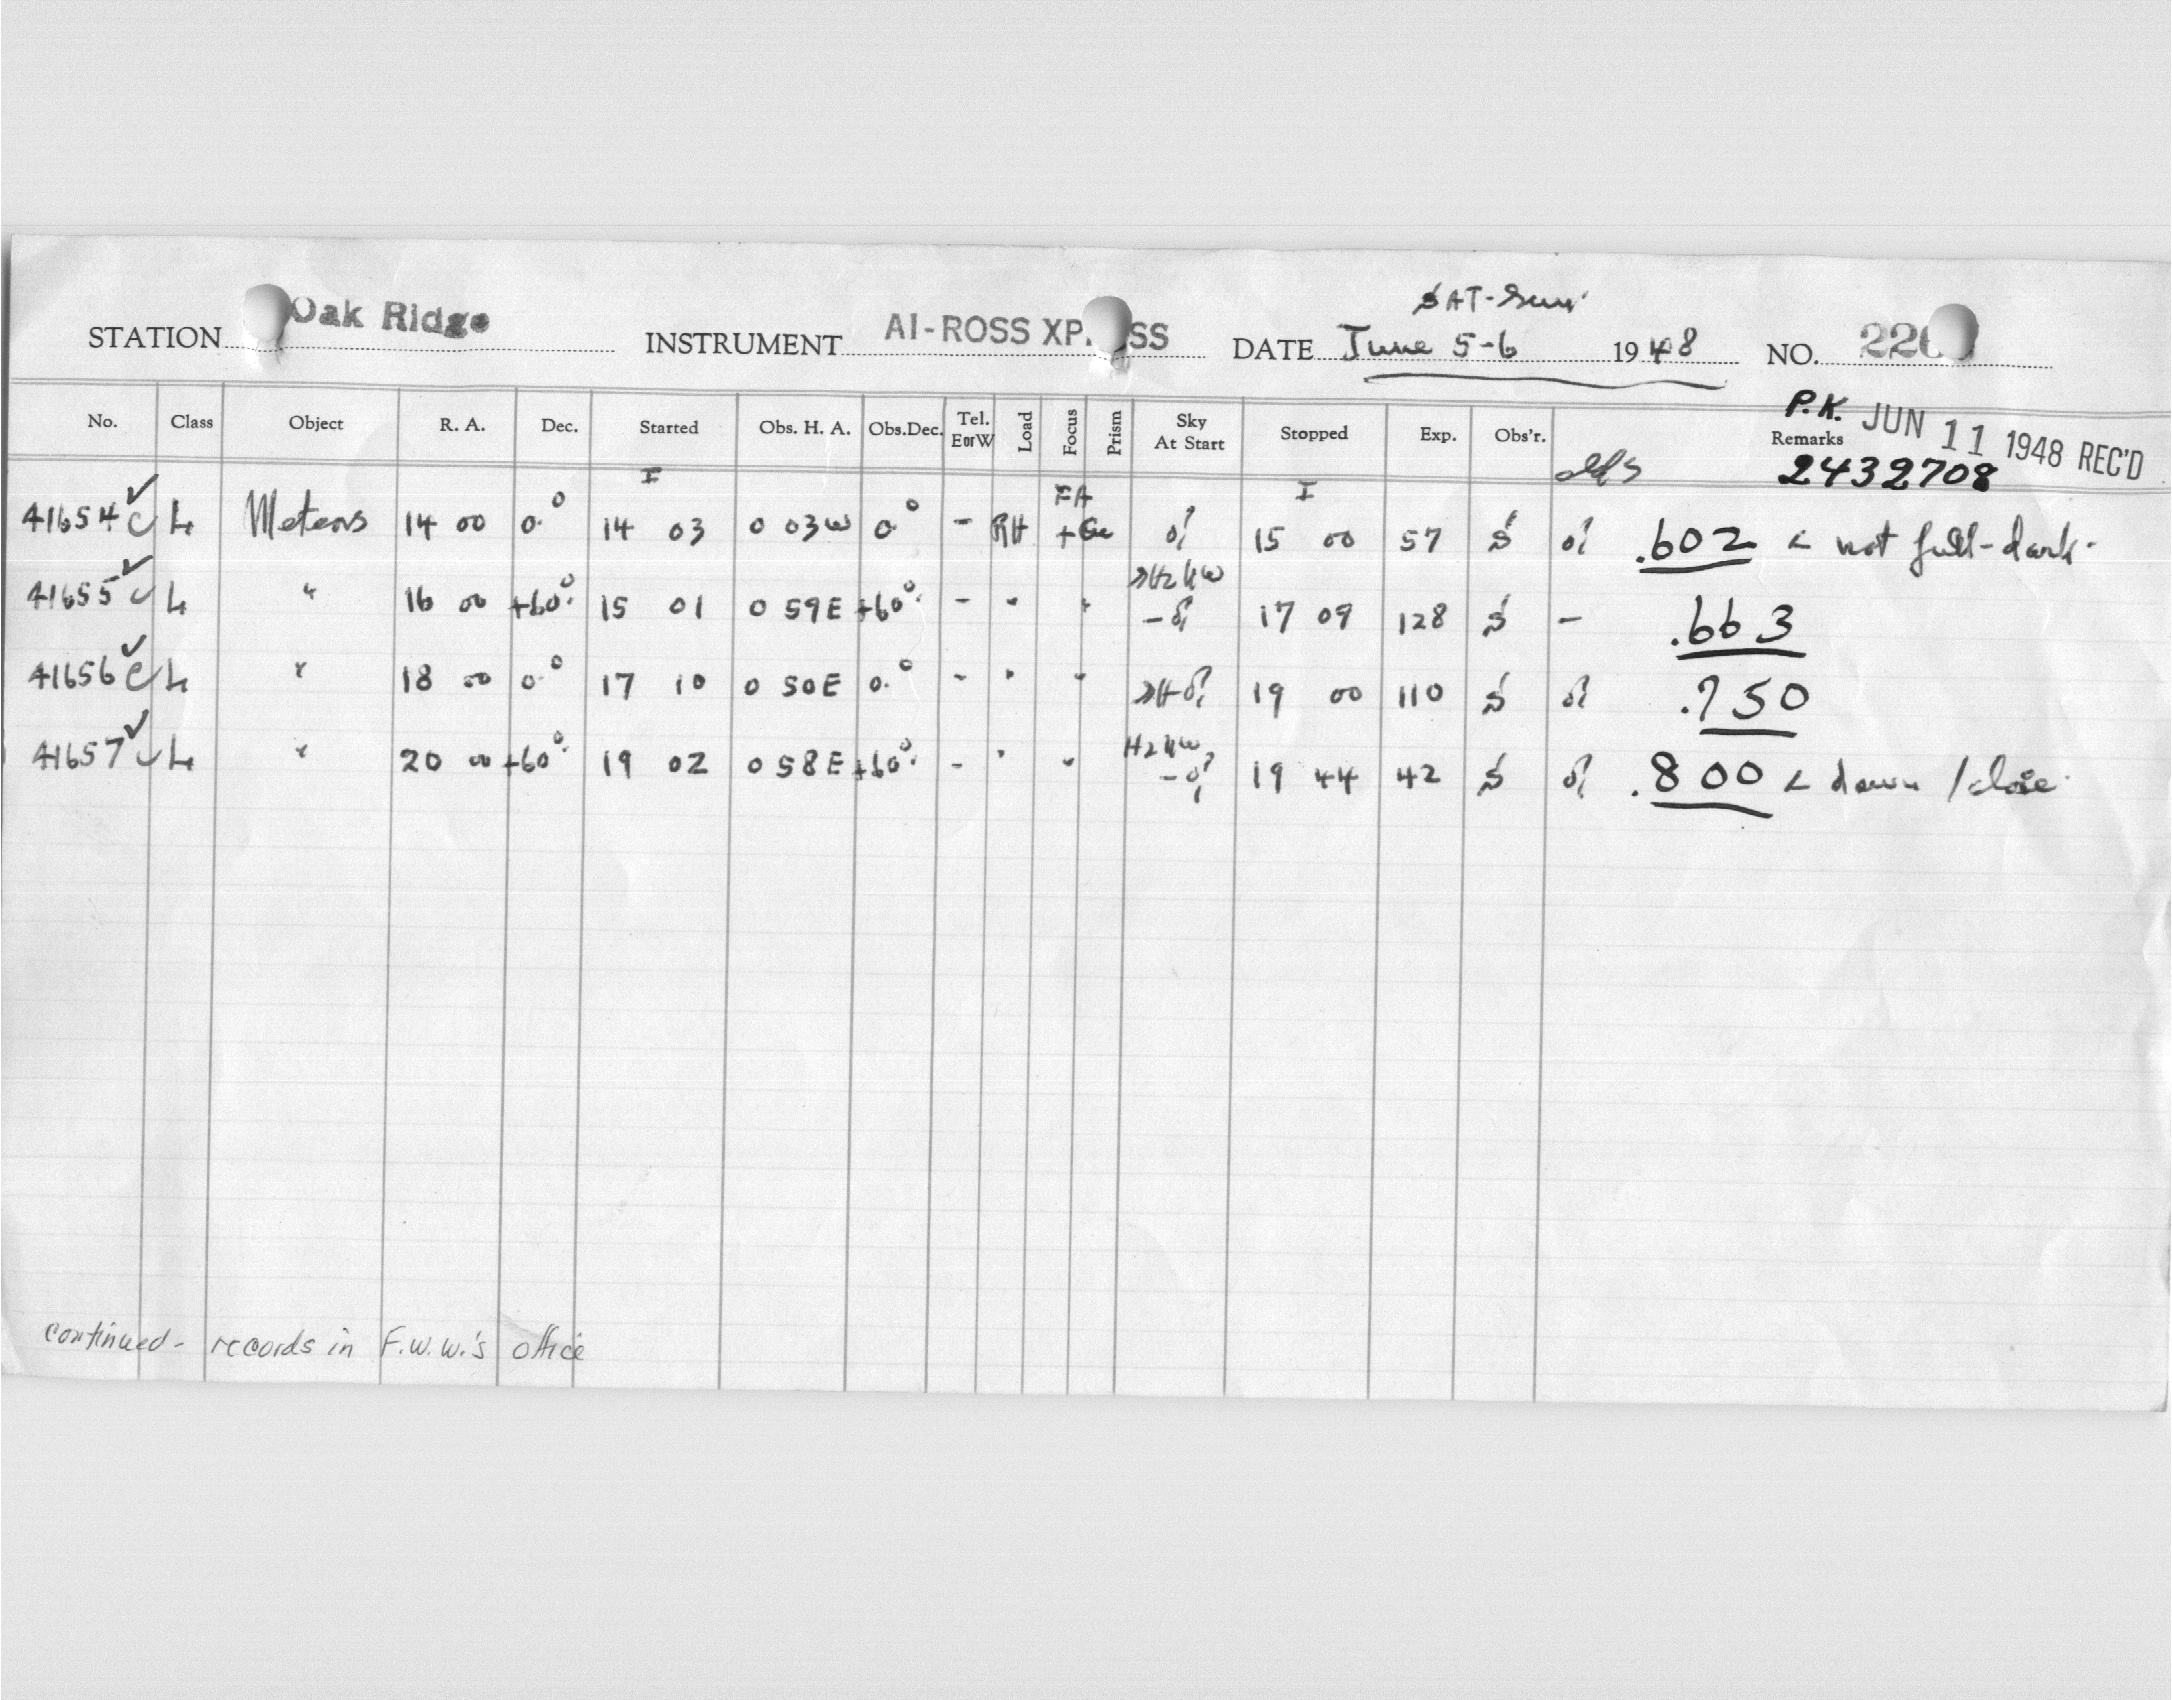 SAT-Sun
STATION Oak Ridge INSTRUMENT AI-ROSS XP SS DATE June 5-6 1948 NO.
P.K. JUN 11 1948 REC'D
No. Class Object R. A. Dec. Started Obs. H. A. Obs.Dec. Tel. E or W Load Focus Prism Sky At Start Stopped Exp. Obs'r. Remarks
I I 2432708
41654 ✓ L Meteors 14 00 0° 14 03 0 03W 0° - RH FA 15 00 57 S .602 < not full-dark.
41655 ✓ L " 16 00 +60° 15 01 0 59E +60° - " " 17 09 128 S - .663
41656 ✓ L " 18 00 0° 17 10 0 50E 0° - " " 19 00 110 S .750
41657 ✓ L " 20 00 +60° 19 02 0 58E +60° - " " 19 44 42 S .800 < dawn /close.
continued - records in F.W.W.'s office